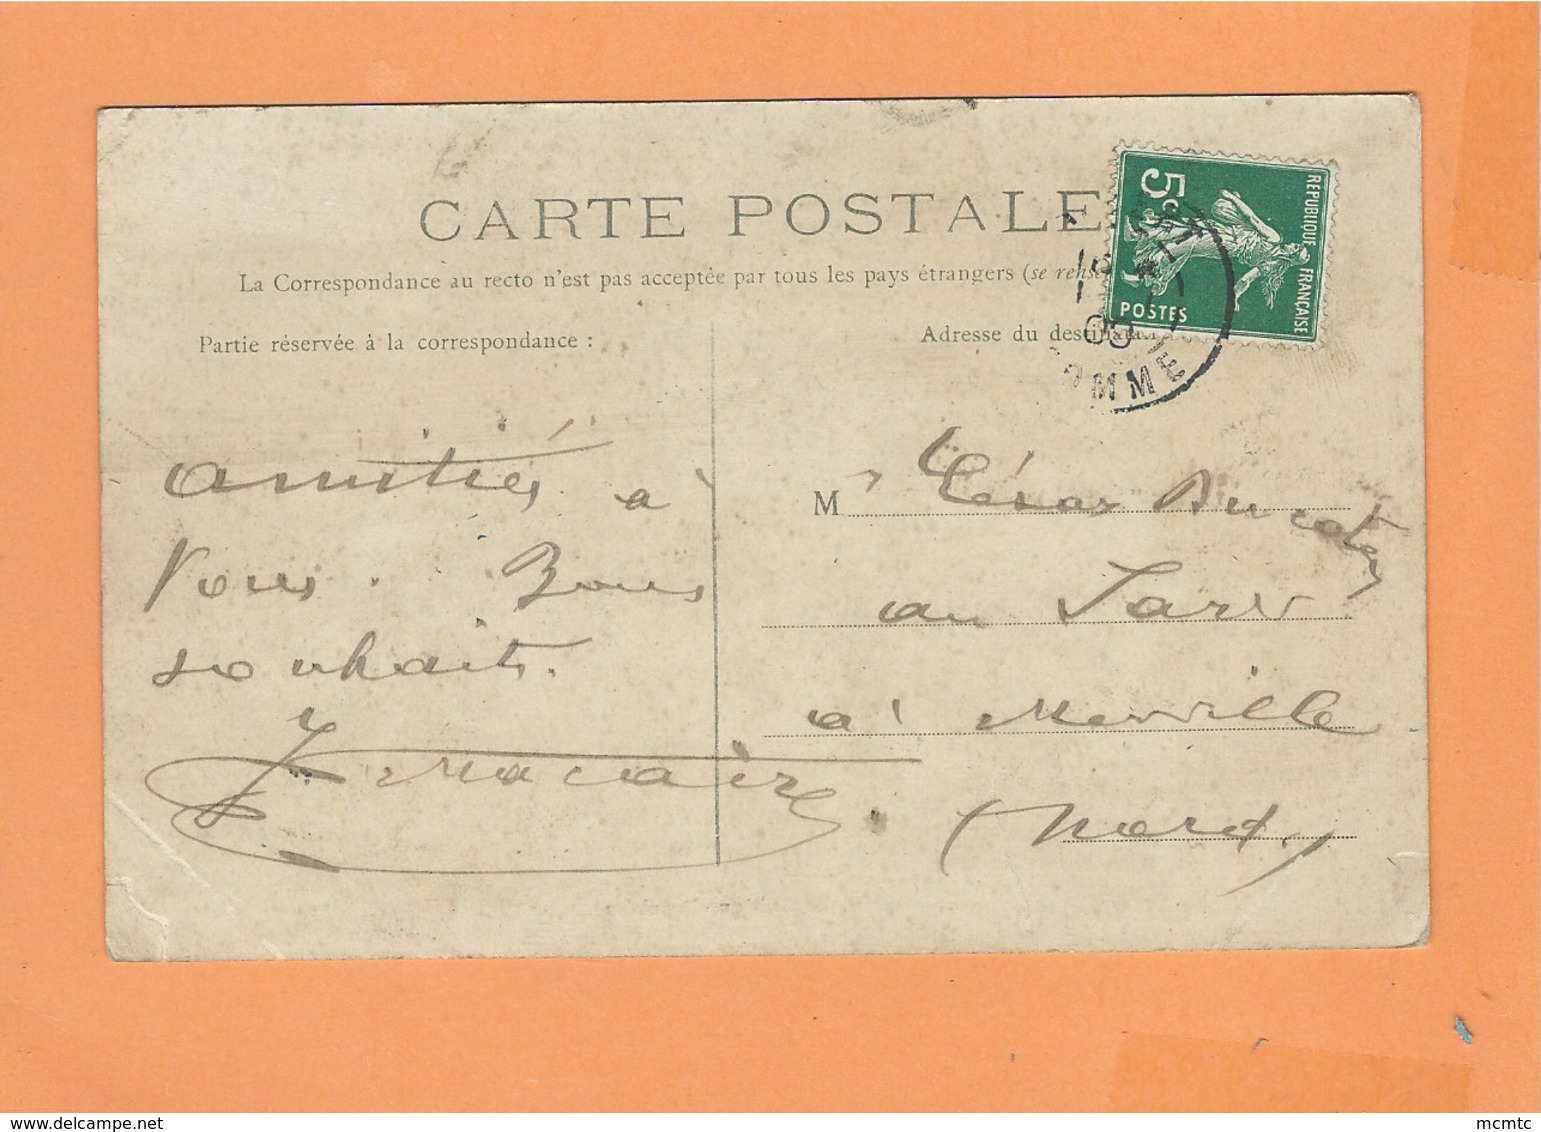 CARTE POSTALE
La Correspondance au recto n'est pas acceptée par tous les pays étrangers (se rense
Partie réservée à la correspondance :
Adresse du destinata
5c
REPUBLIQUE FRANÇAISE
POSTES
OMME
amitiés à
Vous. Bons
souhaits.
Macaire
M r César
au Sart
à Merville
(Nord)
www.delcampe.net
mcmtc